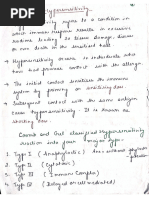 Hypersensitivity
Hypersensitivity refers to a condition in
which immune response results in excessive
reactions leading to tissue damage, disease
or even death in the sensitized host.
→ Hypersensitivity occurs in individuals who
had previous contact with the allergen.
→ The initial contact sensitizes the immune
system by priming or sensitizing dose.
→ Subsequent contact with the same antigen
causes Hypersensitivity.
Coomb and Gel classified Hypersensitivity
reaction into four major types
1. Type I (Anaphylactic)
2. Type II (Cytotoxic)
3. Type III (Immune Complex)
4. Type IV (Delayed or cell mediated)